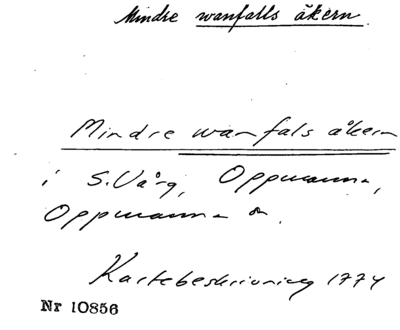 Mindre wanfalls åkern.
Mindre wanfals åkern
i S. Vång, Oppmanna,
Oppmanna sn.
Kartebeskrivning 1774
Nr 10856